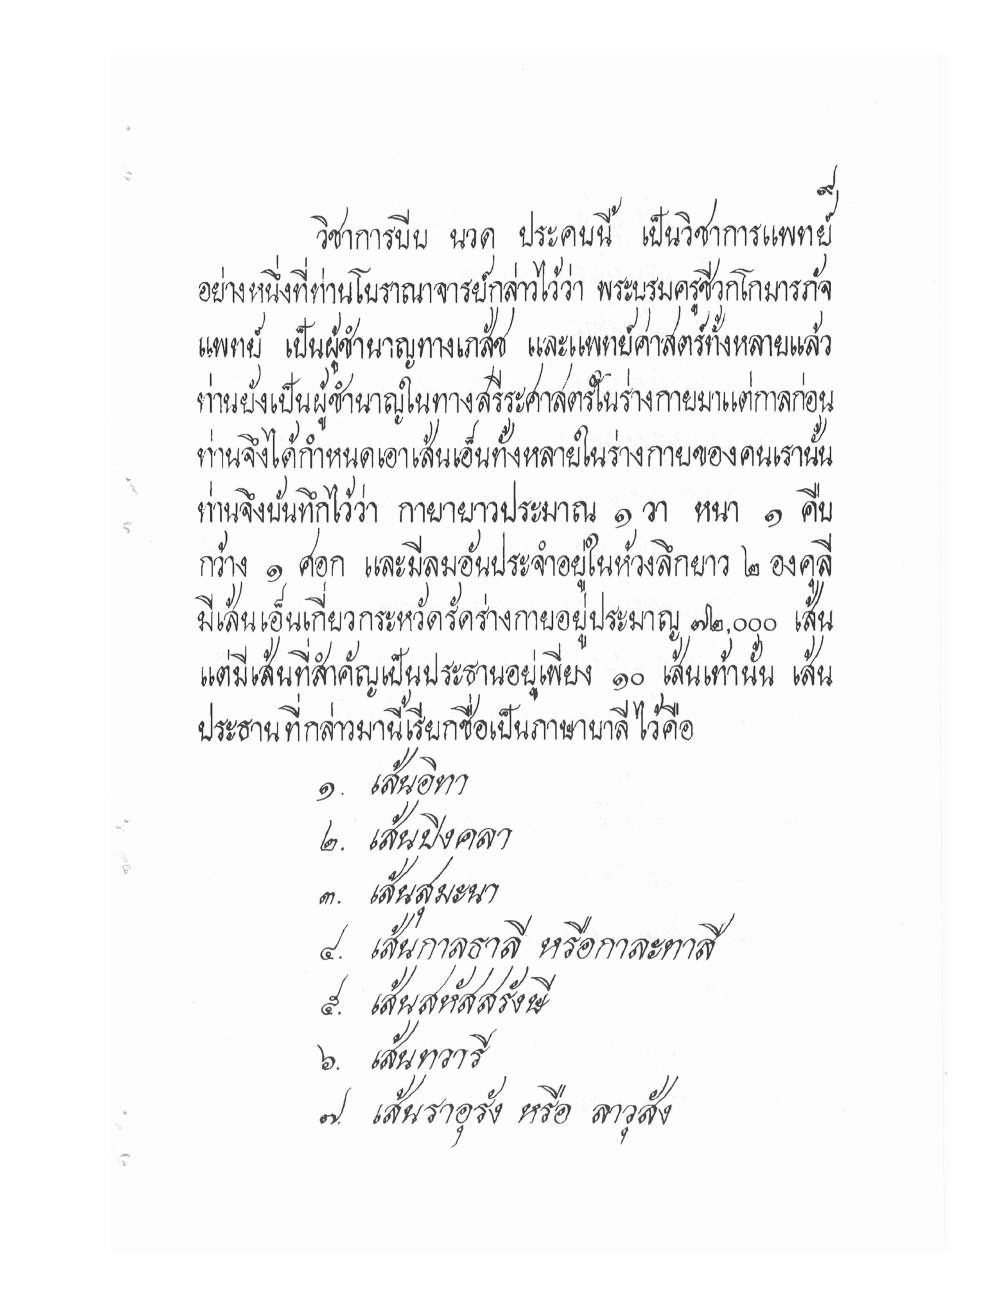 ๙
วิชาการบีบ นวด ประคบนี้ เป็นวิชาการแพทย์
อย่างหนึ่งที่ท่านโบราณาจารย์กล่าวไว้ว่า พระบรมครูชีวกโกมารภัจ
แพทย์ เป็นผู้ชำนาญทางเภสัช และแพทย์ศาสตร์ทั้งหลายแล้ว
ท่านยังเป็นผู้ชำนาญในทางสรีระศาสตร์ในร่างกายมาแต่กาลก่อน
ท่านจึงได้กำหนดเอาเส้นเอ็นทั้งหลายในร่างกายของคนเรานั้น
ท่านจึงบันทึกไว้ว่า กายายาวประมาณ ๑ วา หนา ๑ คืบ
กว้าง ๑ ศอก และมีลมอันประจำอยู่ในห้วงลึกยาว ๒ องคุลี
มีเส้นเอ็นเกี่ยวกระหวัดรัดร่างกายอยู่ประมาญ ๗๒,๐๐๐ เส้น
แต่มีเส้นที่สำคัญเป็นประธานอยู่เพียง ๑๐ เส้นเท่านั้น เส้น
ประธานที่กล่าวมานี้เรียกชื่อเป็นภาษาบาลีไว้คือ
๑. เส้นอิทา
๒. เส้นปิงคลา
๓. เส้นสุมะนา
๔. เส้นกาลธาลี หรือกาละทาสี
๕. เส้นสหัสสรังษี
๖. เส้นทวารี
๗. เส้นราอุรัง หรือ ลาวุสัง